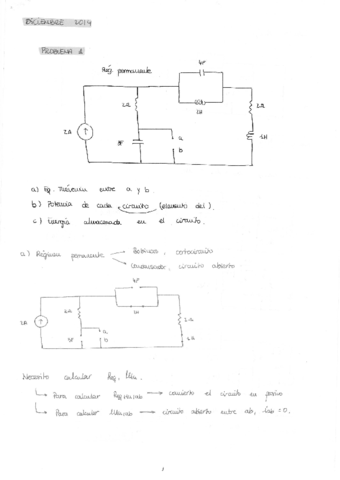 DICIEMBRE 2019
PROBLEMA 1
Rég. permanente
4F
2Ω
1H
2Ω
2A
8F
a
b
2H
a) Eq. Thévenin entre a y b
b) Potencia de cada circuito (elemento del).
c) Energía almacenada en el circuito.
a) Régimen permanente
Bobinas, cortocircuito
Condensador, circuito abierto
2A
2Ω
a
2Ω
Necesito calcular Req, Uth.
Para calcular Req convierto el circuito en pasivo
Para calcular circuito abierto entre ab, Iab = 0.
1